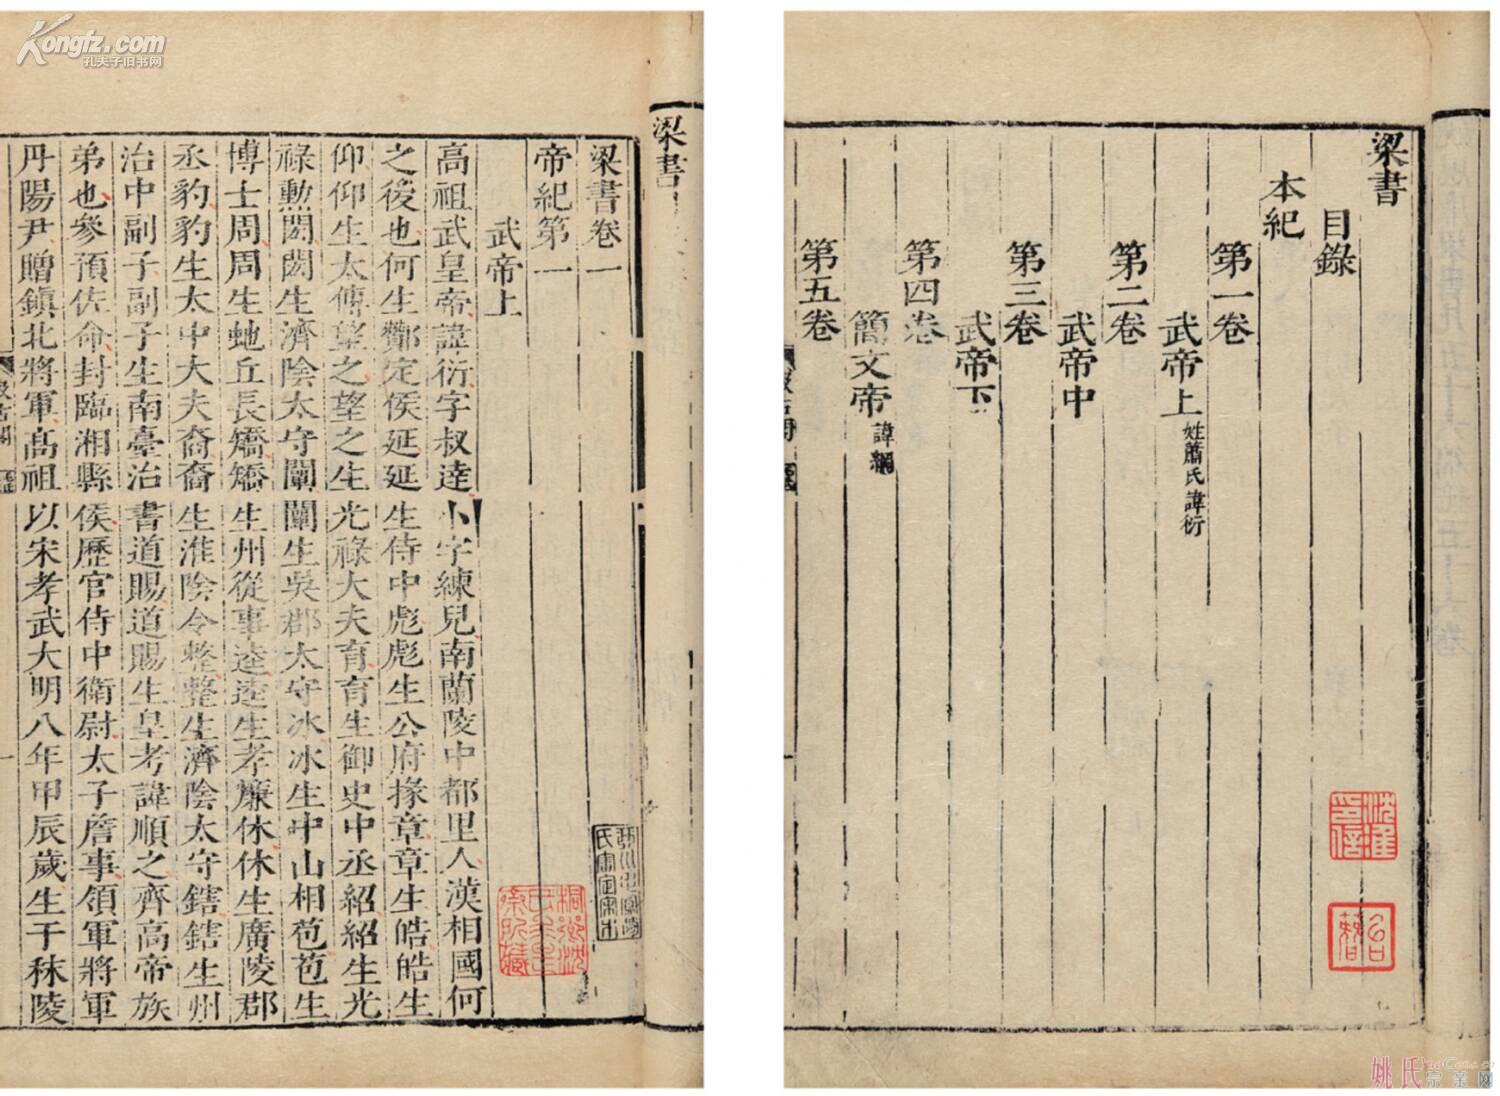 梁書
目錄
本紀
第一卷
武帝上 姓蕭氏諱衍
第二卷
武帝中
第三卷
武帝下
第四卷
簡文帝 諱綱
第五卷
梁書
梁書卷一
帝紀第一
武帝上
高祖武皇帝諱衍字叔逹小字練兒南蘭陵中都里人漢相國何
之後也何生酇定侯延延生侍中彪彪生公府掾章章生皓皓生
仰仰生太傅望之望之生光祿大夫育育生御史中丞紹紹生光
祿勳閎閎生濟陰太守闡闡生吳郡太守冰冰生中山相苞苞生
博士周周生虵丘長矯矯生州從事逵逵生孝廉休休生廣陵郡
丞豹豹生太中大夫裔裔生淮陰令整整生濟陰太守鎋鎋生州
治中副子副子生南臺治書道賜道賜生皇考諱順之齊高帝族
弟也參預佐命封臨湘縣侯歷官侍中衛尉太子詹事領軍將軍
丹陽尹贈鎮北將軍高祖以宋孝武大明八年甲辰歲生于秣陵
汲古閣
一
Kongfz.com
孔夫子旧书网
姚氏宗亲网